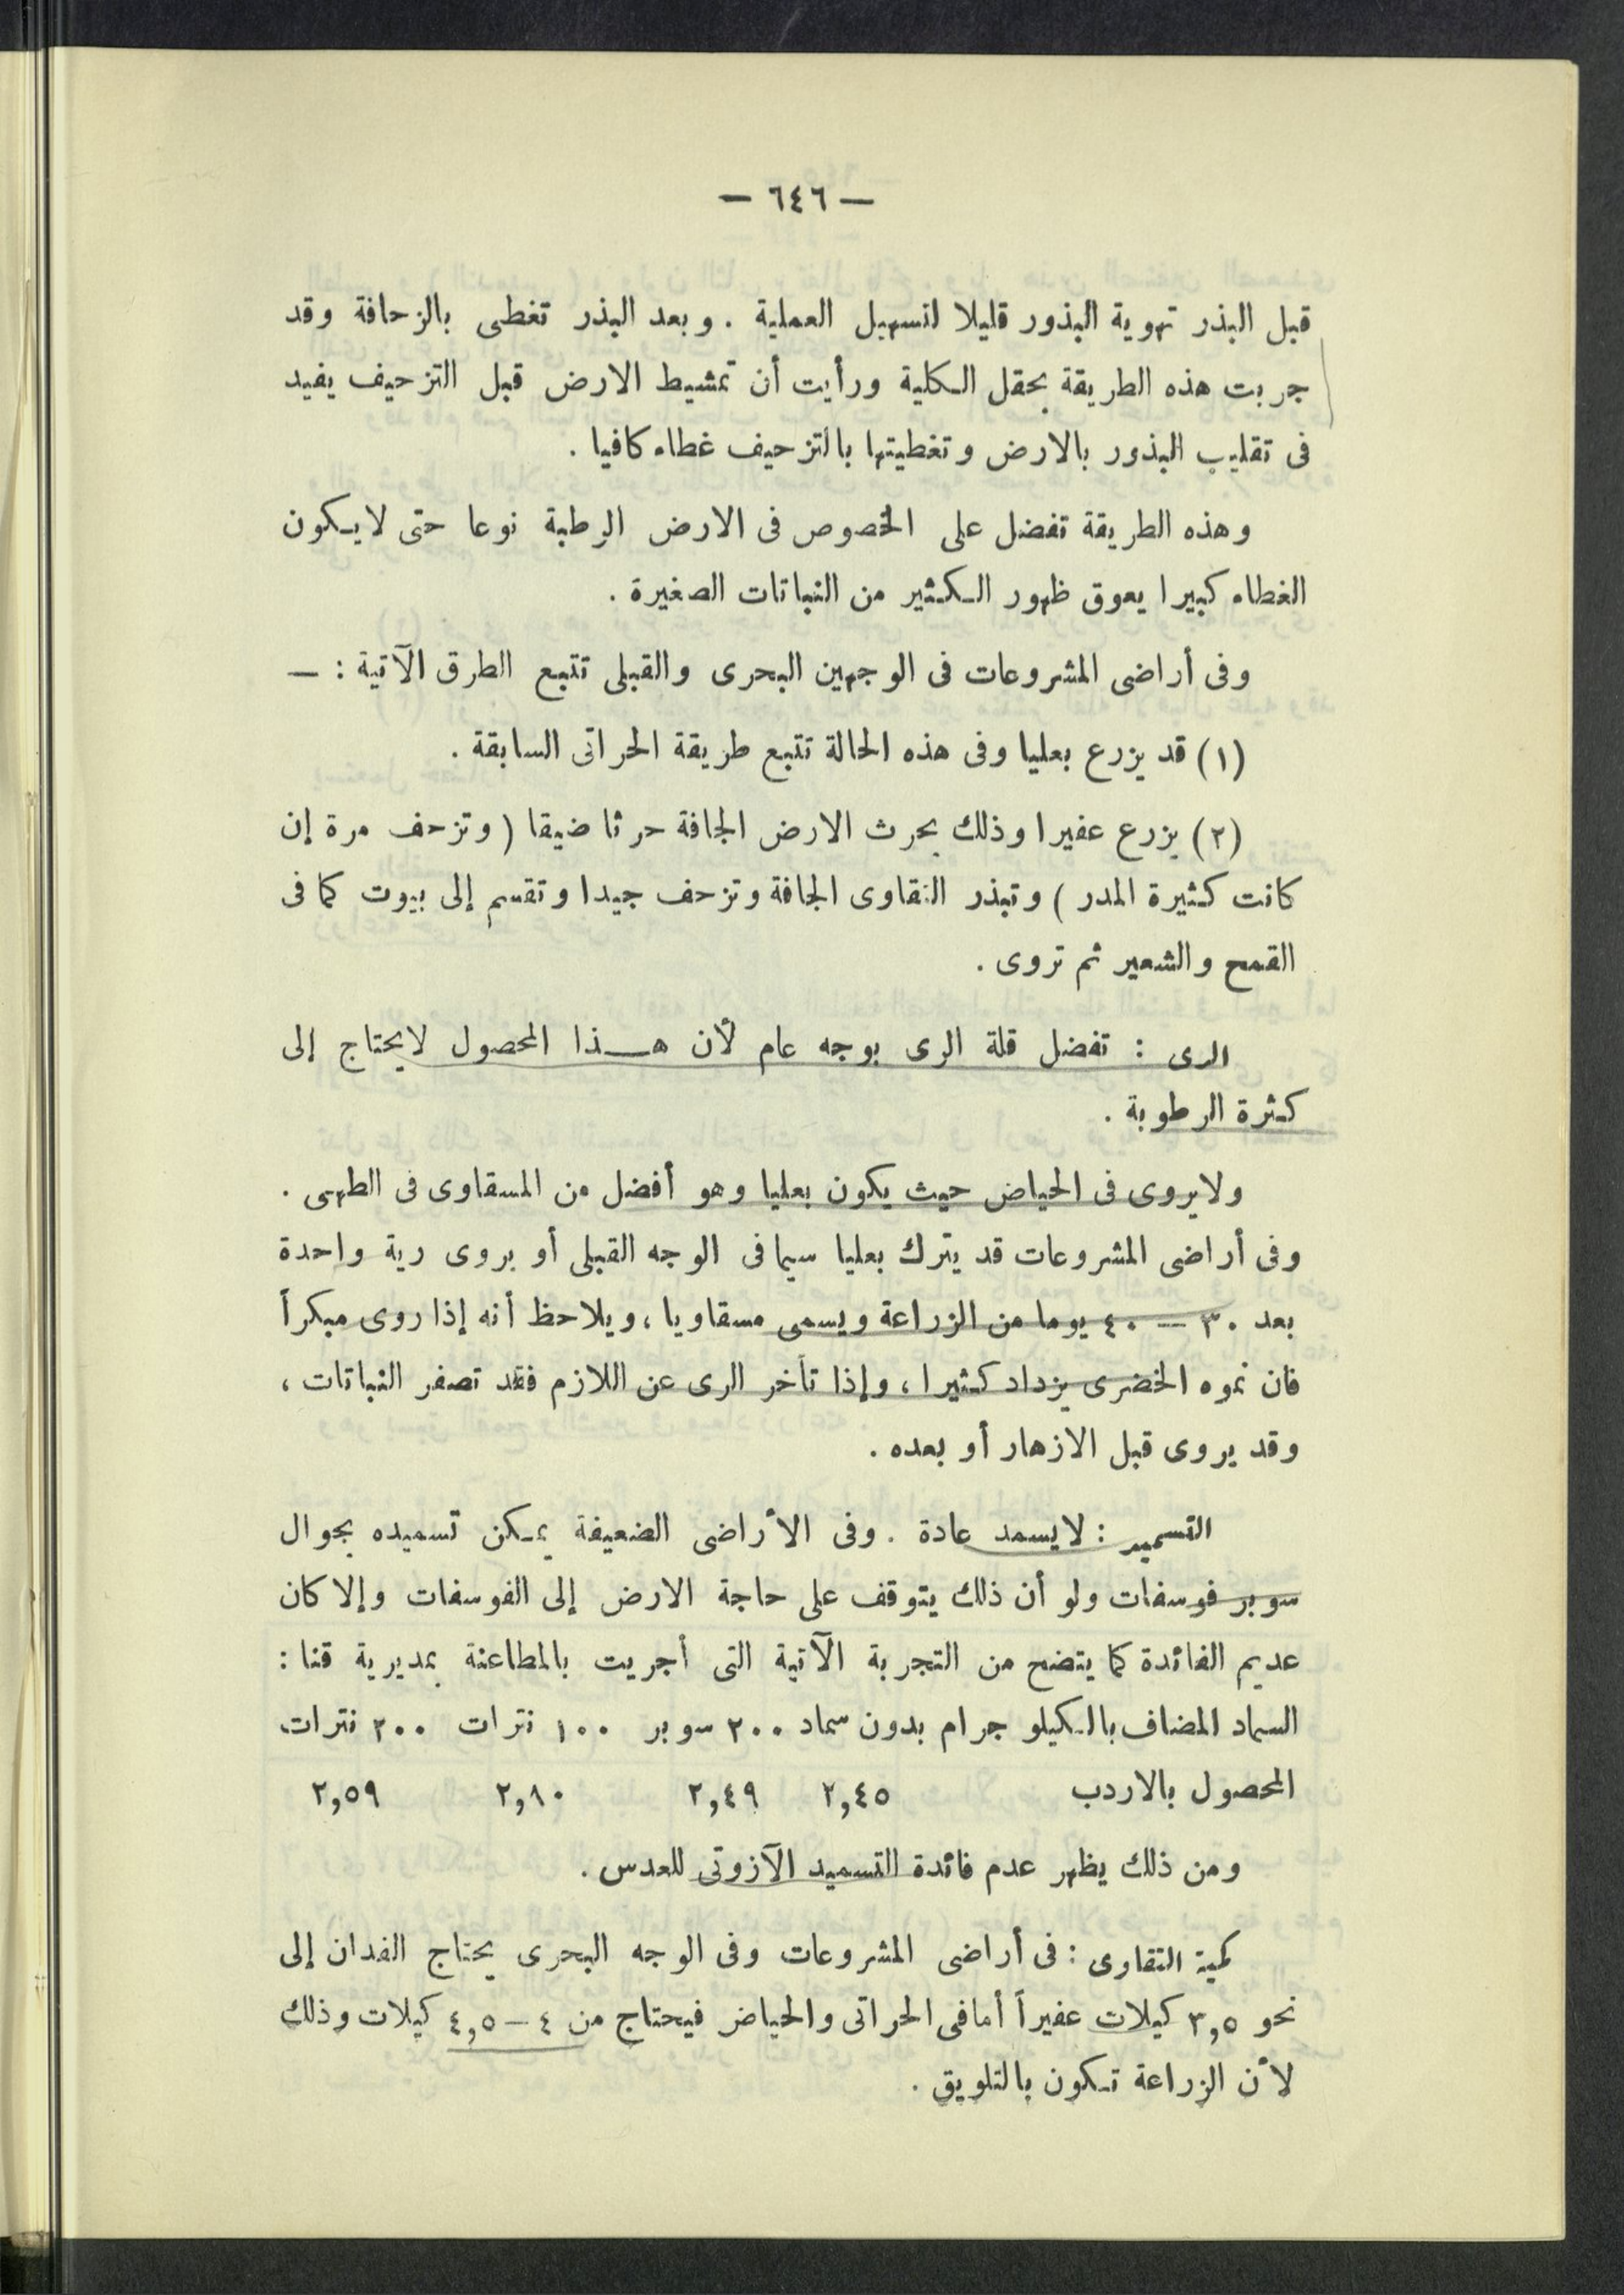 — ٦٤٦ —
قبل البذر تهوية البذور قليلا لتسهيل العملية . وبعد البذر تغطى بالزحافة وقد
جربت هذه الطريقة بحقل الكلية ورأيت أن تمشيط الارض قبل التزحيف يفيد
فى تقليب البذور بالارض وتغطيتها بالتزحيف غطاء كافيا .
وهذه الطريقة تفضل على الخصوص فى الارض الرطبة نوعا حتى لا يكون
الغطاء كبيرا يعوق ظهور الكثير من النباتات الصغيرة .
وفى أراضى المشروعات فى الوجهين البحرى والقبلى تتبع الطرق الآتية : —
(١) قد يزرع بعليا وفى هذه الحالة تتبع طريقة الحراتى السابقة .
(٢) يزرع عفيرا وذلك بحرث الارض الجافة حرثا ضيقا ( وتزحف مرة إن
كانت كثيرة المدر ) وتبذر التقاوى الجافة وتزحف جيدا وتقسم إلى بيوت كما فى
القمح والشعير ثم تروى .
الرى : تفضل قلة الرى بوجه عام لأن هـذا المحصول لايحتاج إلى
كثرة الرطوبة .
ولايروى فى الحياض حيث يكون بعليا وهو أفضل من المسقاوى فى الطهى .
وفى أراضى المشروعات قد يترك بعليا سيما فى الوجه القبلى أو يروى رية واحدة
بعد ٣٠ — ٤٠ يوما من الزراعة ويسمى مسقاويا ، ويلاحظ أنه إذا روى مبكراً
فان نموه الخضرى يزداد كثيرا ، وإذا تأخر الرى عن اللازم فقد تصفر النباتات ،
وقد يروى قبل الازهار أو بعده .
التسميد : لايسمد عادة . وفى الأراضى الضعيفة يمكن تسميده بجوال
سوبر فوسفات ولو أن ذلك يتوقف على حاجة الارض إلى الفوسفات وإلا كان
عديم الفائدة كما يتضح من التجربة الآتية التى أجريت بالمطاعنة بمديرية قنا :
السماد المضاف بالكيلو جرام بدون سماد ٢٠٠ سوبر ١٠٠ نترات ٢٠٠ نترات
المحصول بالاردب ٢,٤٥ ٢,٤٩ ٢,٨٠ ٢,٥٩
ومن ذلك يظهر عدم فائدة التسميد الآزوتى للعدس .
كمية التقاوى : فى أراضى المشروعات وفى الوجه البحرى يحتاج الفدان إلى
نحو ٣,٥ كيلات عفيراً أما فى الحراتى والحياض فيحتاج من ٤ – ٤,٥ كيلات وذلك
لأن الزراعة تكون بالتلويق .